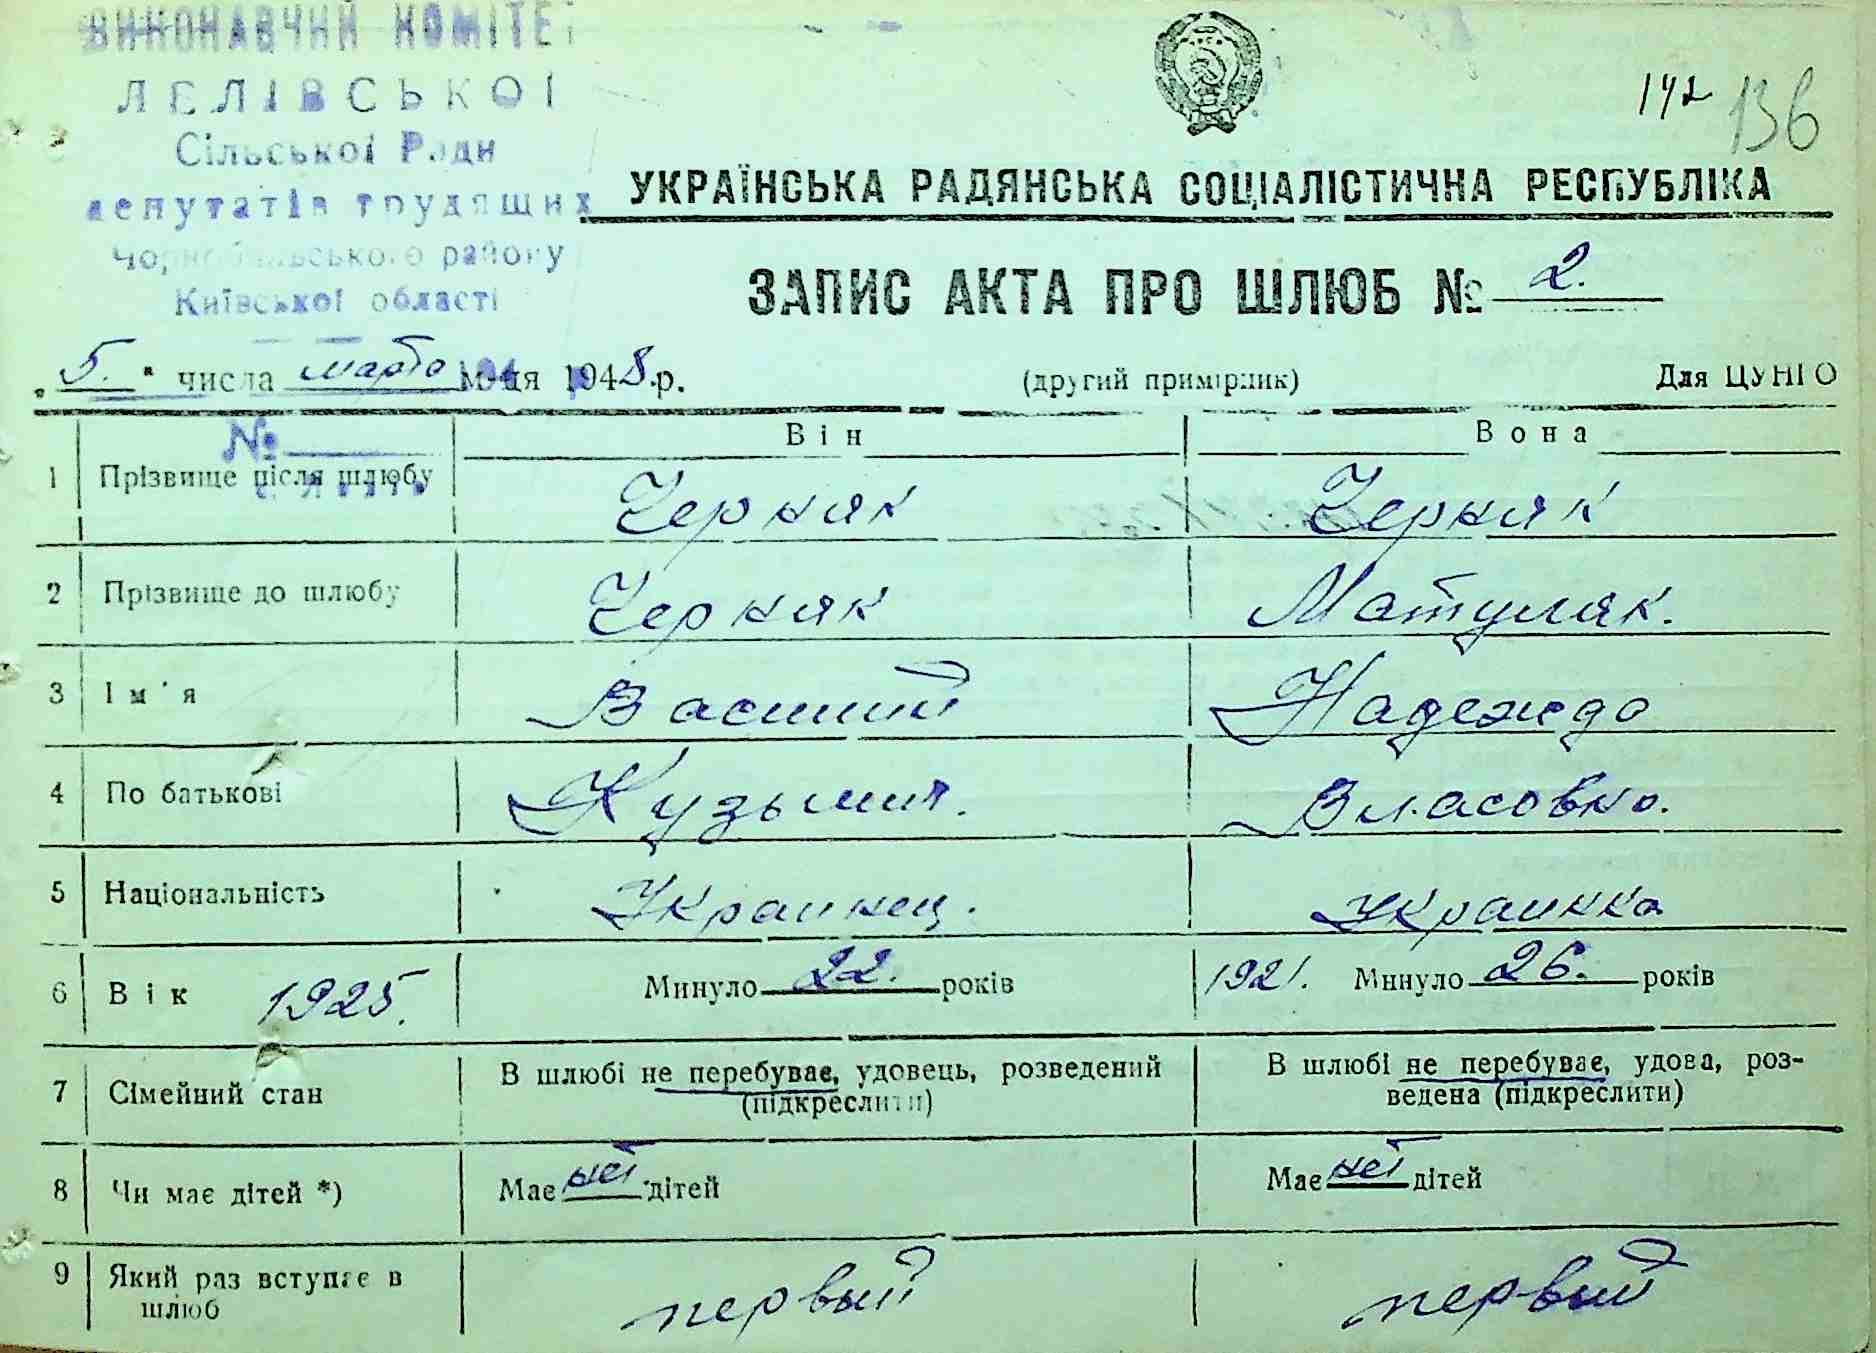 ВИКОНАВЧИЙ КОМІТЕТ
ЛЕЛІВСЬКОЇ
Сільської Ради
депутатів трудящих
Чорнобильського району
Київської області
142 136
УКРАЇНСЬКА РАДЯНСЬКА СОЦІАЛІСТИЧНА РЕСПУБЛІКА
ЗАПИС АКТА ПРО ШЛЮБ № 2.
„5.“ числа марта м-ця 1948 р. (другий примірник) Для ЦУНГО
№
Він Вона
1 Прізвище після шлюбу Черняк Черняк
2 Прізвище до шлюбу Черняк Матуляк.
3 Ім'я Василий Надежда
4 По батькові Кузьмич. Власовна.
5 Національність Украинец. Украинка
6 Вік 1925. Минуло 22. років 1921. Минуло 26. років
7 Сімейний стан В шлюбі не перебуває, удовець, розведений (підкреслити) В шлюбі не перебуває, удова, роз-
ведена (підкреслити)
8 Чи має дітей *) Має нет дітей Має нет дітей
9 Який раз вступає в
шлюб первый первый